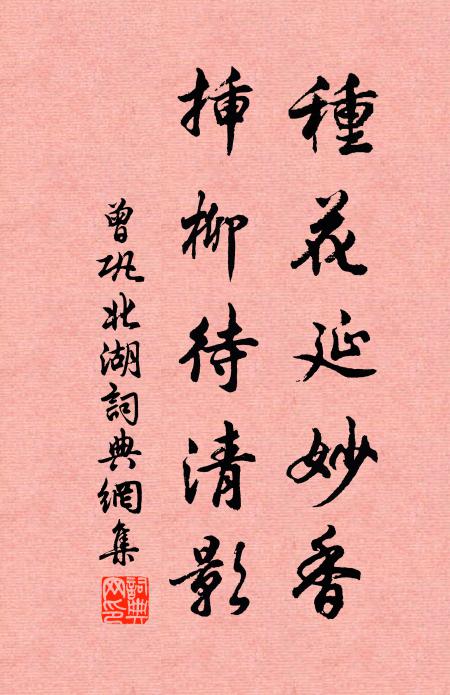 種花延妙香
插柳待清影
曾巩北湖詞典網集
詞典
網印